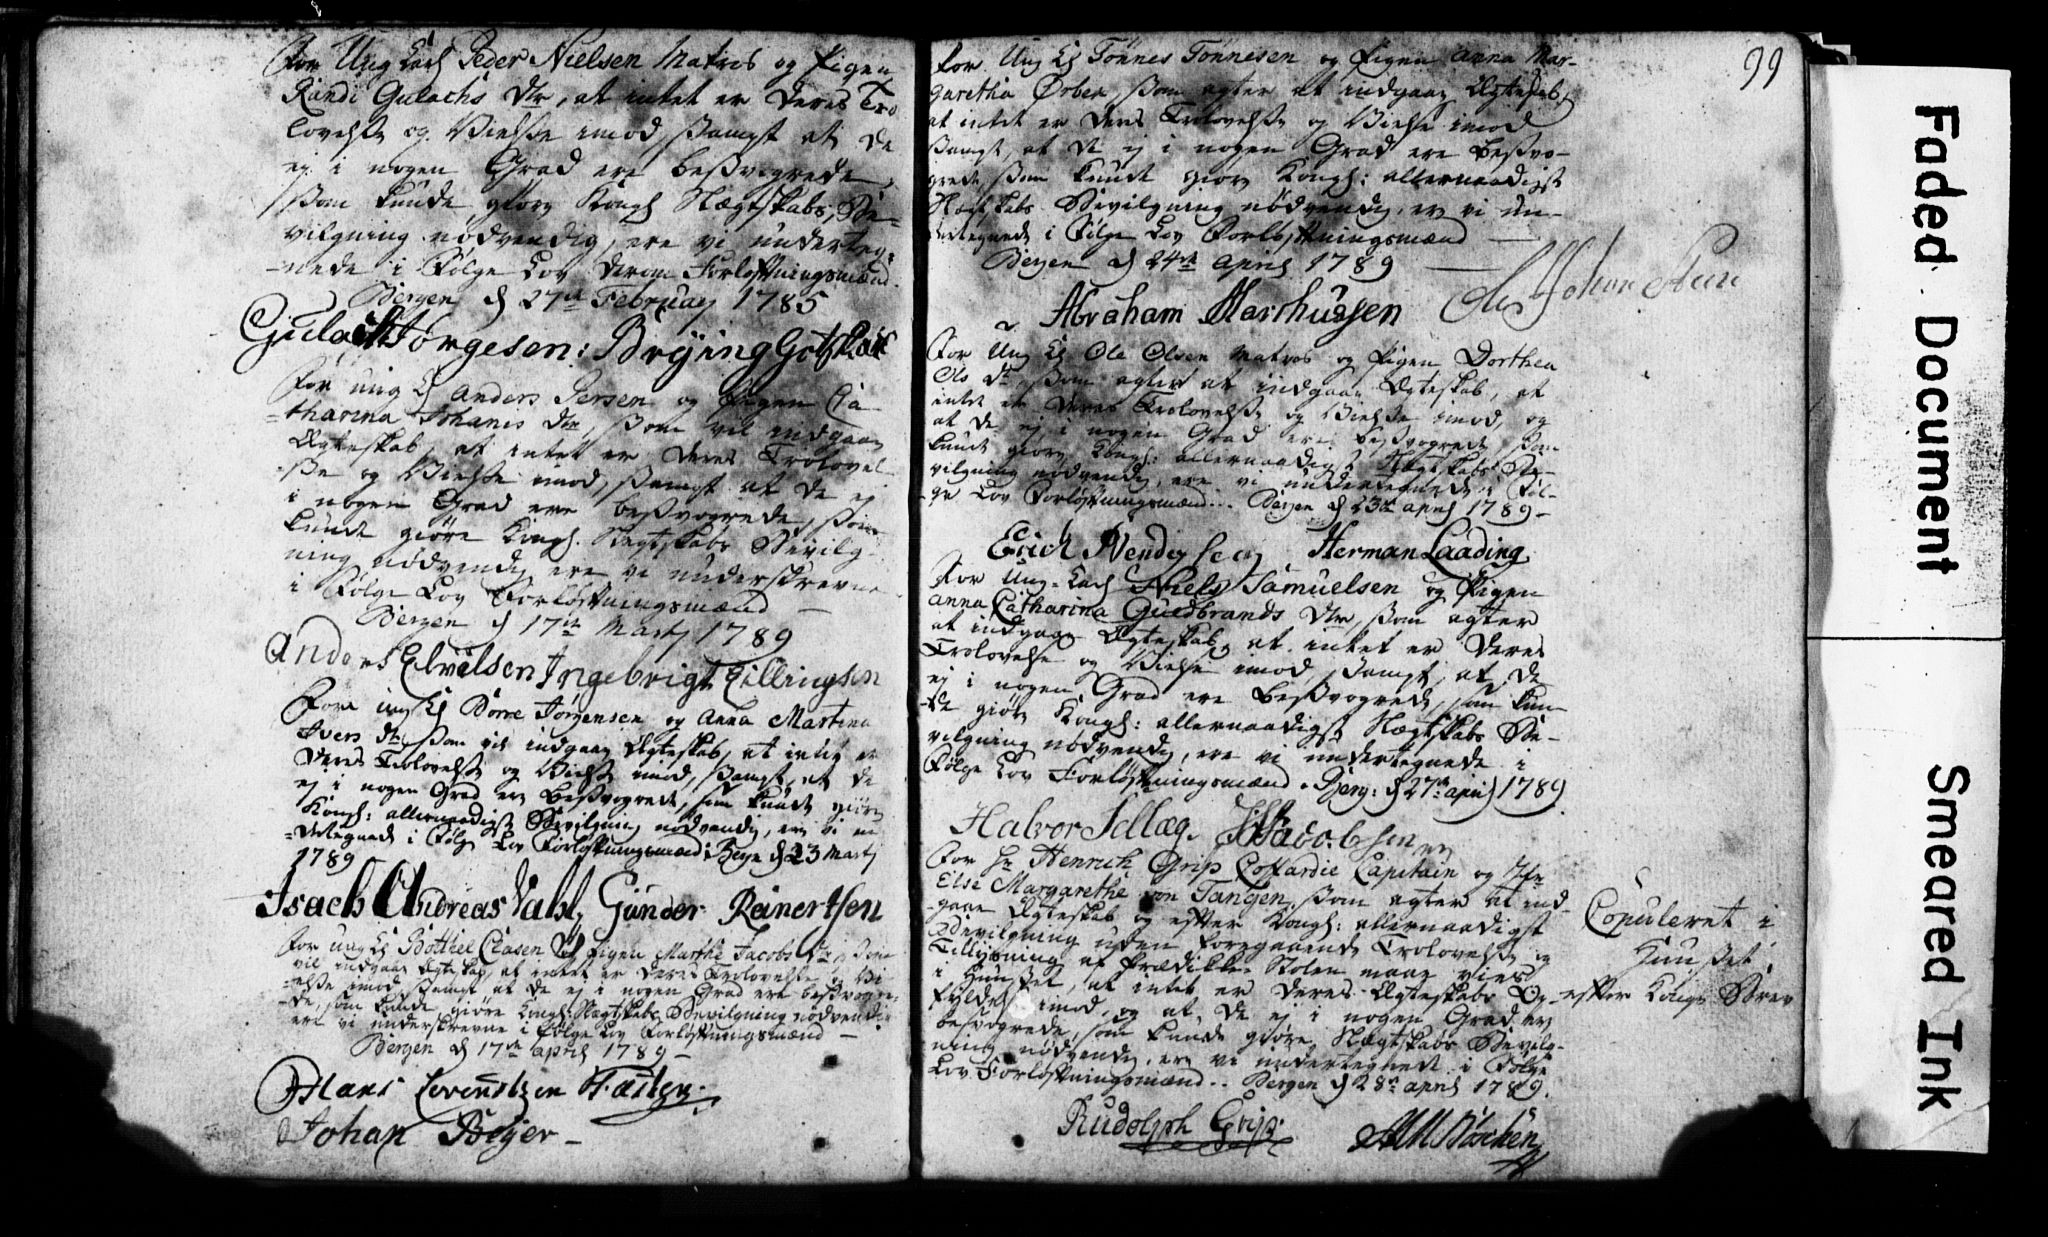 For Ung Karl Peder Nielsen Matros og Pigen
Randi Gulachs dtr, at intet er Deres Tro
lovelse og Vielse imod, samgt at de
ej i nogen Grad ere besvogrede,
som kunde giøre Kongl Slægtskabs Be-
vilgning nødvendig, ere vi underteg-
nede i Følge Lov derom Forløftningsmænd.
Bergen d 27de February 1785
Gulach Jørgesen: Brÿing
For ung K Anders Persen og Pigen Ca-
tharina Johanis dtr, som vil indgaae
Ægteskab, at intet er Deres Trolovel-
se og Vielse imod, samgt at de ej
i nogen Grad ere besvogrede, som
kunde giøre Kongl. Slegtskabs Bevilg-
ning nødvendig ere vi underskrevne
i Følge Lov Forløftningsmænd
Bergen d 17de Marty 1789
Anders Elvilsen Ingebrigt Tillingsen
For ung K Børre Jørgensen og Anna Martina
Ivers dtr, som vil indgaae Ægteskab, at intet er
Deres Trolovelse og Vielse imod, samgt, at de
ej i nogen Grad ere besvogrede, som kunde giøre
Kongl: allernaadigst Bevilgning nødvendig, ere vi un-
dertegnede i Følge Lov Forløftningsmænd: Berge d 23 Marty
1789
Isach Andreas Vahl, Gunder Reinertsen
For ung K Botthel Clasen og Pigen Marthe Jacobs dtr, som
vil indgaae Ægteskab, at intet er Deres Trolovelse og Vi-
else imod samgt at de ej i nogen Grad ere besvogre-
de, som kunde giøre Kongl: Slægtskabs Bevilgning nødvendig
ere vi underskrevne i Følge Lov Forløftningsmænd
Bergen d 17de April 1789
Hans
Johan Beÿer
99
For Ung K Tønnes Tønnesen og Pigen Anna Mar-
garetha Ørben, som agter at indgaae Ægteskab,
at intet er Deres Trolovelse og Vielse imod
samgt, at de ej i nogen Grad ere besvo-
grede, som kunde giøre Kongl: allernaadigst
Slægtskabs Bevilgning nødvendig, ere vi un-
dertegnede i Følge Lov Forløftningsmænd
Bergen d 24de April 1789
Abraham Marthussen
For Ung K Ole Olsen Matros og Pigen Dorthea
Ols dtr, som agter at indgaae Ægteskab, at
intet er Deres Trolovelse og Vielse imod, og
at de ej i nogen Grad ere besvogrede som
kunde giøre Kongl: allernaadigst Slegtskabs Be-
vilgning nødvendig, ere vi undertegnede i Føl-
ge Lov Forløftningsmænd.. Bergen d 23de April 1789
Erich Herman Laading
For Ung-Karl Niels Samuelsen og Pigen
Anna Catharina Guldbrands dtr, som agter
at indgaae Ægteskab, at intet er Deres
Trolovelse og Vielse imod, samgt, at de
ej i nogen Grad ere besvogrede, som kun-
de giøre Kongl: allernaadigst Slægtskabs Be-
vilgning nødvendig, ere vi undertegnede i
Følge Lov Forløftningsmænd. Berg: d 27de April 1789
Halvor Jacobsen
For Hr Henrich Grip Coffardie Capitain og Jfr
Else Margarethe von Tangen, som agter at ind-
gaae Ægteskab og efter Kongl: allernaadigst
Bevilgning uden foregaaende Trolovelse og
Tillysning af Prædikke-Stolen maae vies
i Huuset, at intet er Deres Ægteskabs
imod, og at de ej i nogen Grad ere
besvogrede, som kunde giøre Slægtskabs Bevilg-
ning nødvendig, ere vi undertegnede i Følge
Lov Forløftningsmænd.. Bergen d 28de April 1789.
Rudolph Grip.
Copuleret i
Huuset
efter Kongs Brev
Faded Document
Smeared Ink